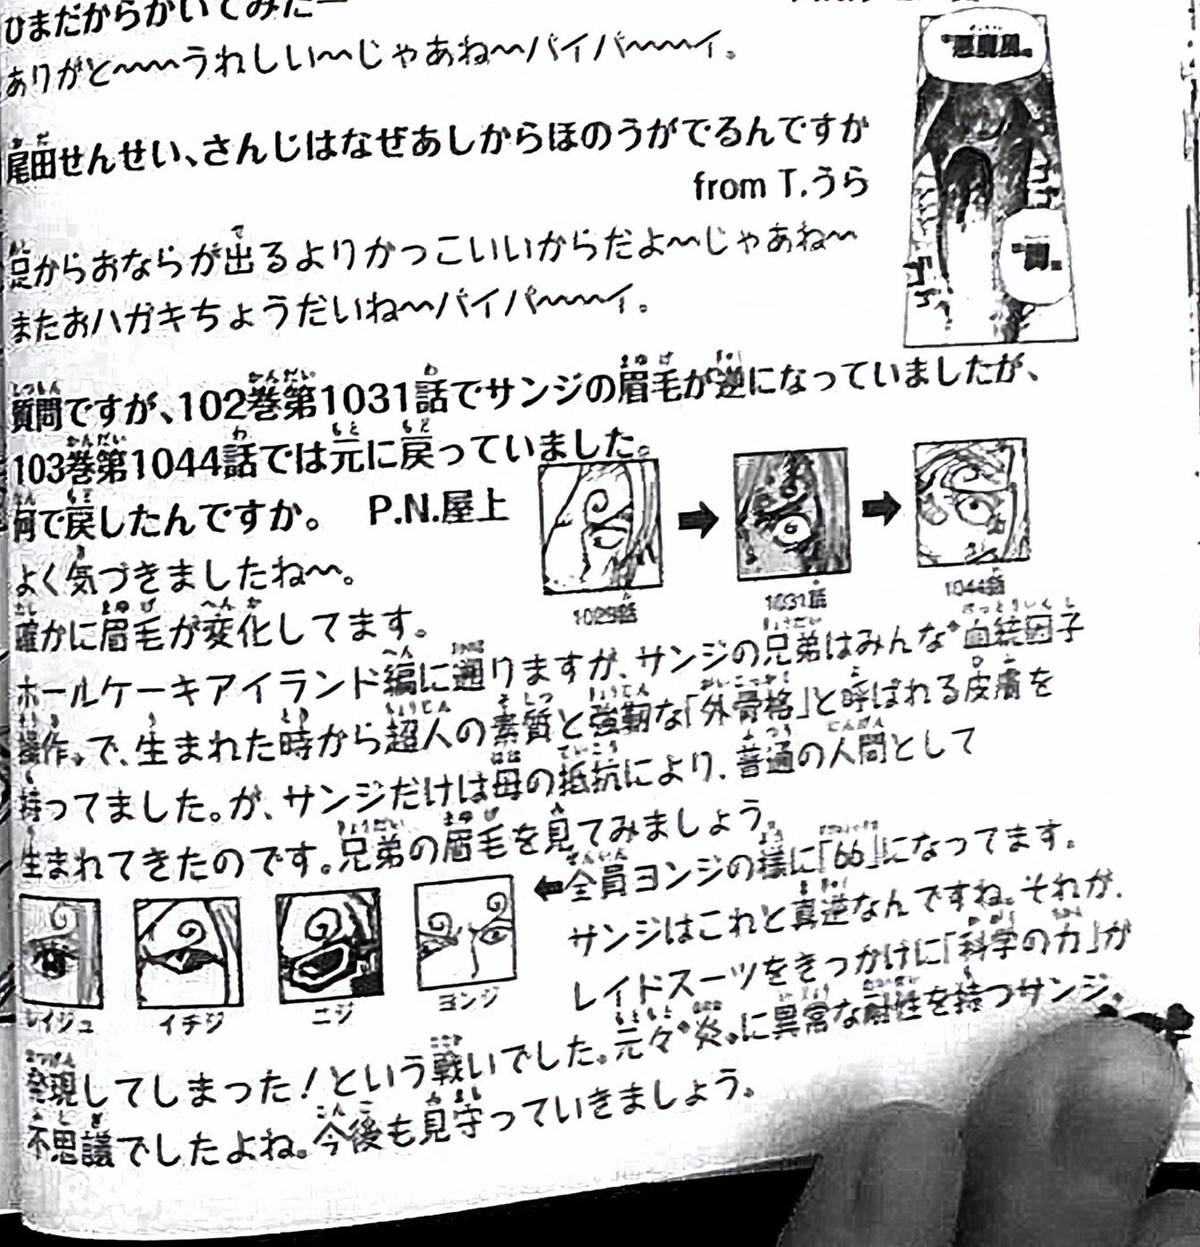 ひまだからかいてみたー
ありがと〜〜〜うれしい〜じゃあね〜バイバ〜〜〜イ。
尾田せんせい、さんじはなぜあしからほのうがでるんですか
from T.うら
足からおならが出るよりかっこいいからだよ〜じゃあね〜
またおハガキちょうだいね〜バイバ〜〜〜イ。
質問ですが、102巻第1031話でサンジの眉毛が逆になっていましたが、
103巻第1044話では元に戻っていました。
何で戻したんですか。 P.N.屋上
1031話
1044話
よく気づきましたね〜。
確かに眉毛が変化してます。
ホールケーキアイランド編に遡りますが、サンジの兄弟はみんな"血統因子
操作"で、生まれた時から超人の素質と強靭な「外骨格」と呼ばれる皮膚を
持ってました。が、サンジだけは母の抵抗により、普通の人間として
生まれてきたのです。兄弟の眉毛を見てみましょう。
レイジュ
イチジ
ニジ
ヨンジ
←全員ヨンジの様に「66」になってます。
サンジはこれと真逆なんですね。それが、
レイドスーツをきっかけに「科学の力」が
発現してしまった!という戦いでした。元々"炎"に異常な耐性を持つサンジ。
不思議でしたよね。今後も見守っていきましょう。